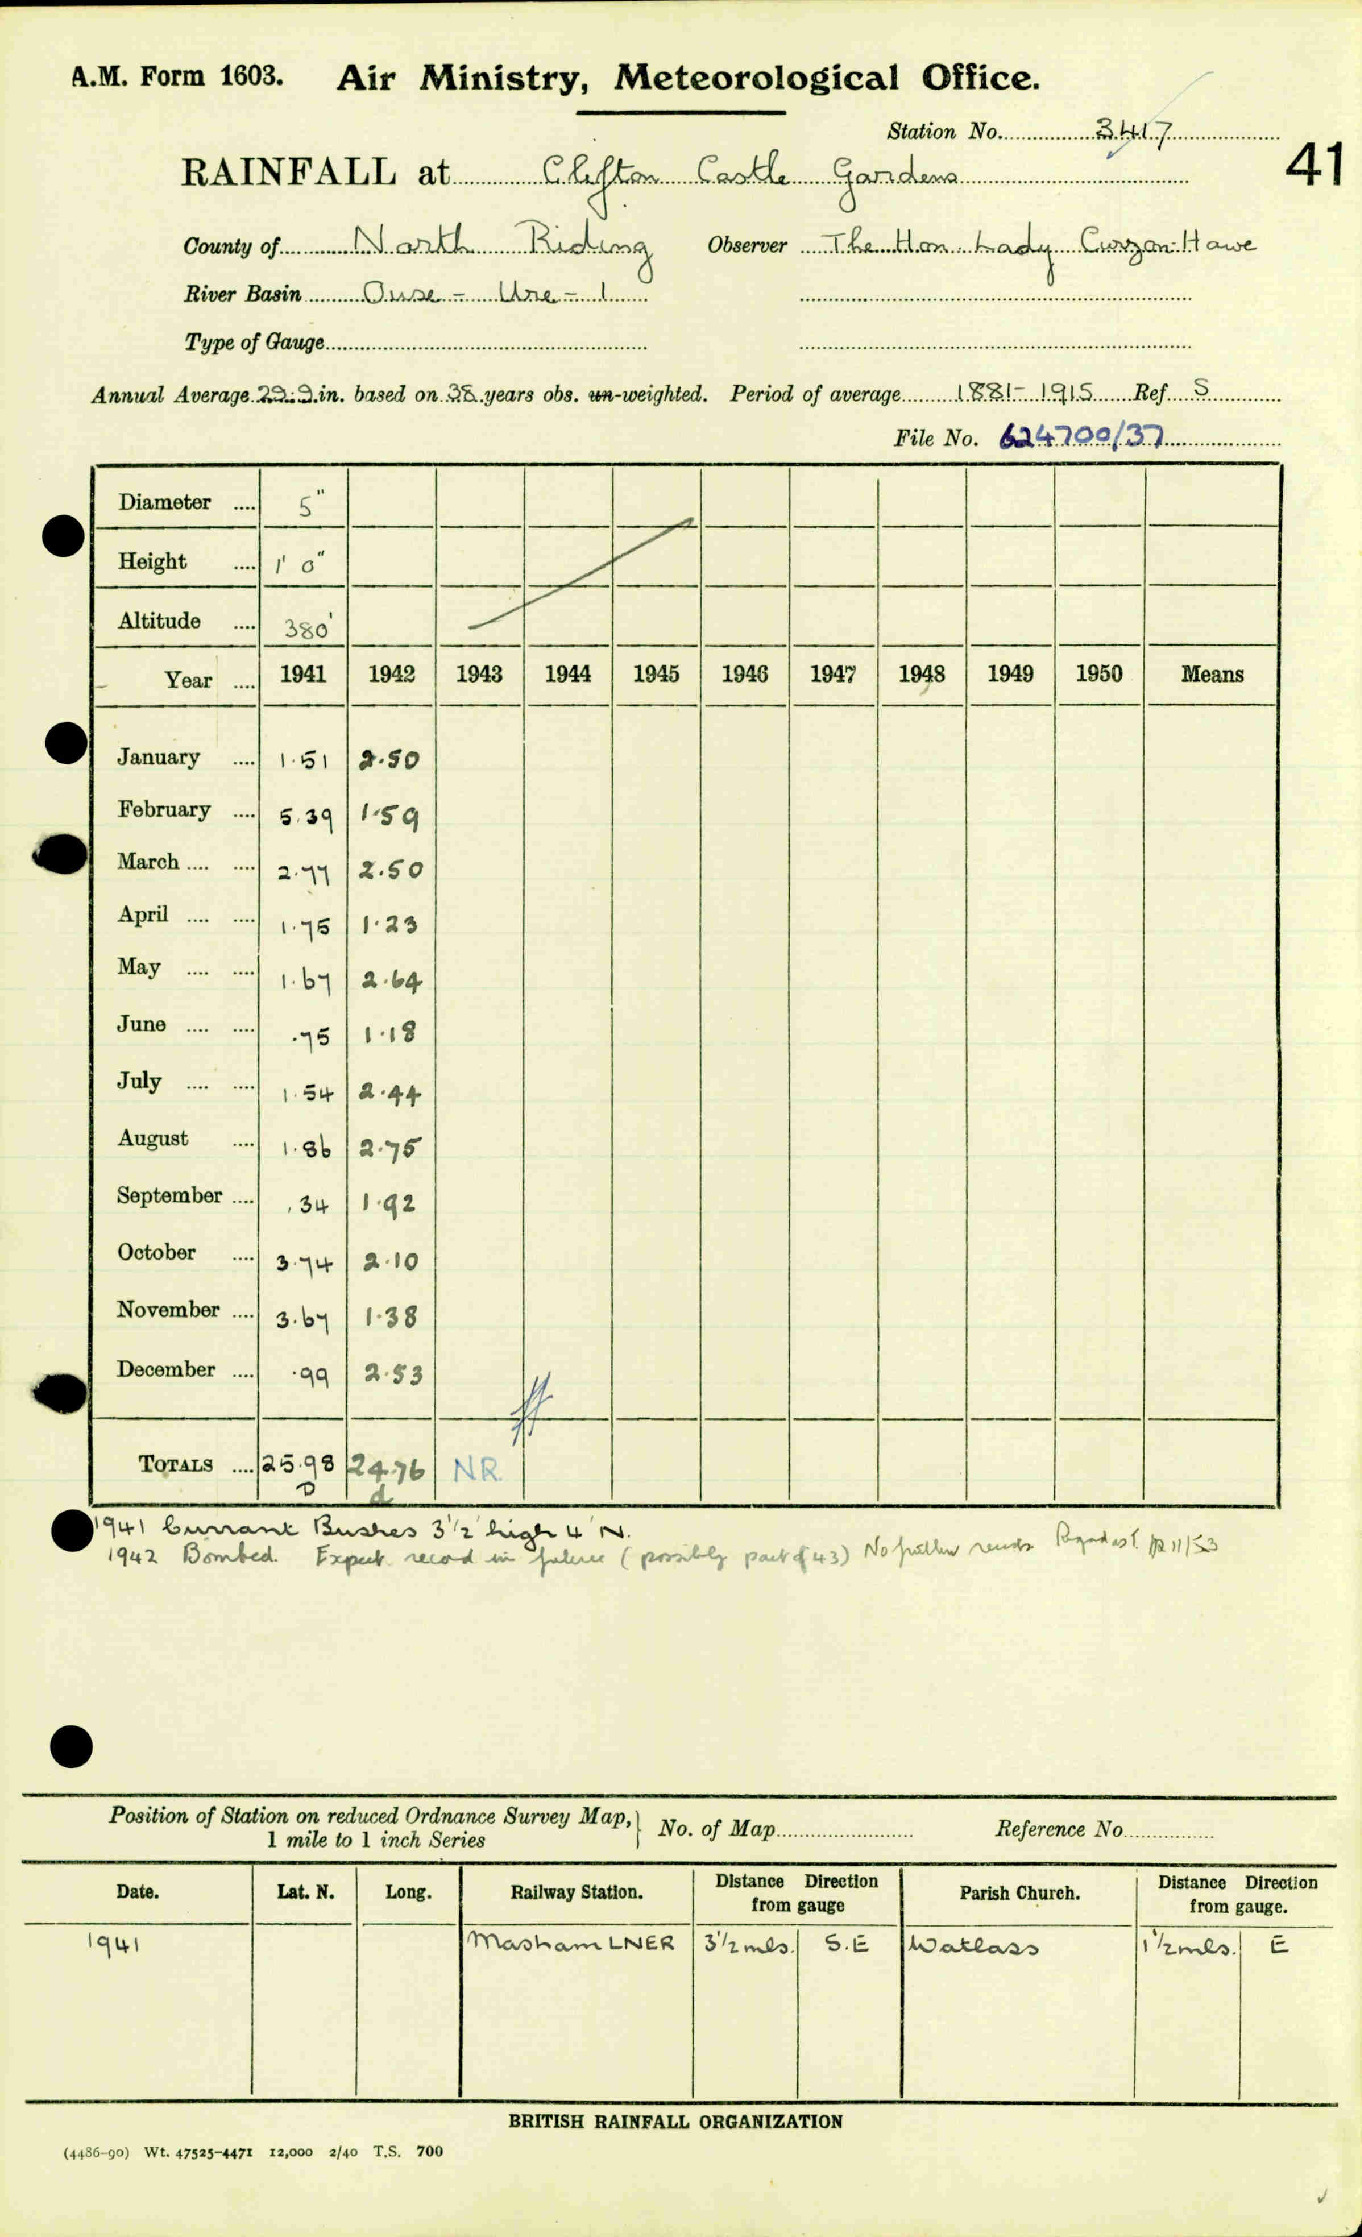 A.M. Form 1603. Air Ministry, Meteorological Office.
Station No. 3417
41
RAINFALL at Clifton Castle Gardens
County of North Riding Observer The Hon. Lady Curzon-Howe
River Basin Ouse - Ure - 1
Type of Gauge
Annual Average 29.9 in. based on 38 years obs. un-weighted. Period of average 1881-1915 Ref. S
File No. 624700/37
Diameter .... 5"
Height .... 1' 0"
Altitude .... 380'
Year .... 1941 1942 1943 1944 1945 1946 1947 1948 1949 1950 Means
January .... 1.51 2.50
February .... 5.39 1.59
March .... .... 2.77 2.50
April .... .... 1.75 1.23
May .... .... 1.67 2.64
June .... .... .75 1.18
July .... .... 1.54 2.44
August .... 1.86 2.75
September .... .34 1.92
October .... 3.74 2.10
November .... 3.67 1.38
December .... .99 2.53
TOTALS .... 25.98 24.76 NR
D d
1941 Currant Bushes 3½' high 4' N.
1942 Bombed. Expect record in future (possibly part of 43) No further 11/53
Position of Station on reduced Ordnance Survey Map,
1 mile to 1 inch Series
No. of Map Reference No.
Date. Lat. N. Long. Railway Station. Distance Direction from gauge Parish Church. Distance Direction from gauge.
1941 Masham LNER 3½ mls. S.E Watlass 1½ mls. E
BRITISH RAINFALL ORGANIZATION
(4486-90) Wt. 47525-4471 12,000 2/40 T.S. 700